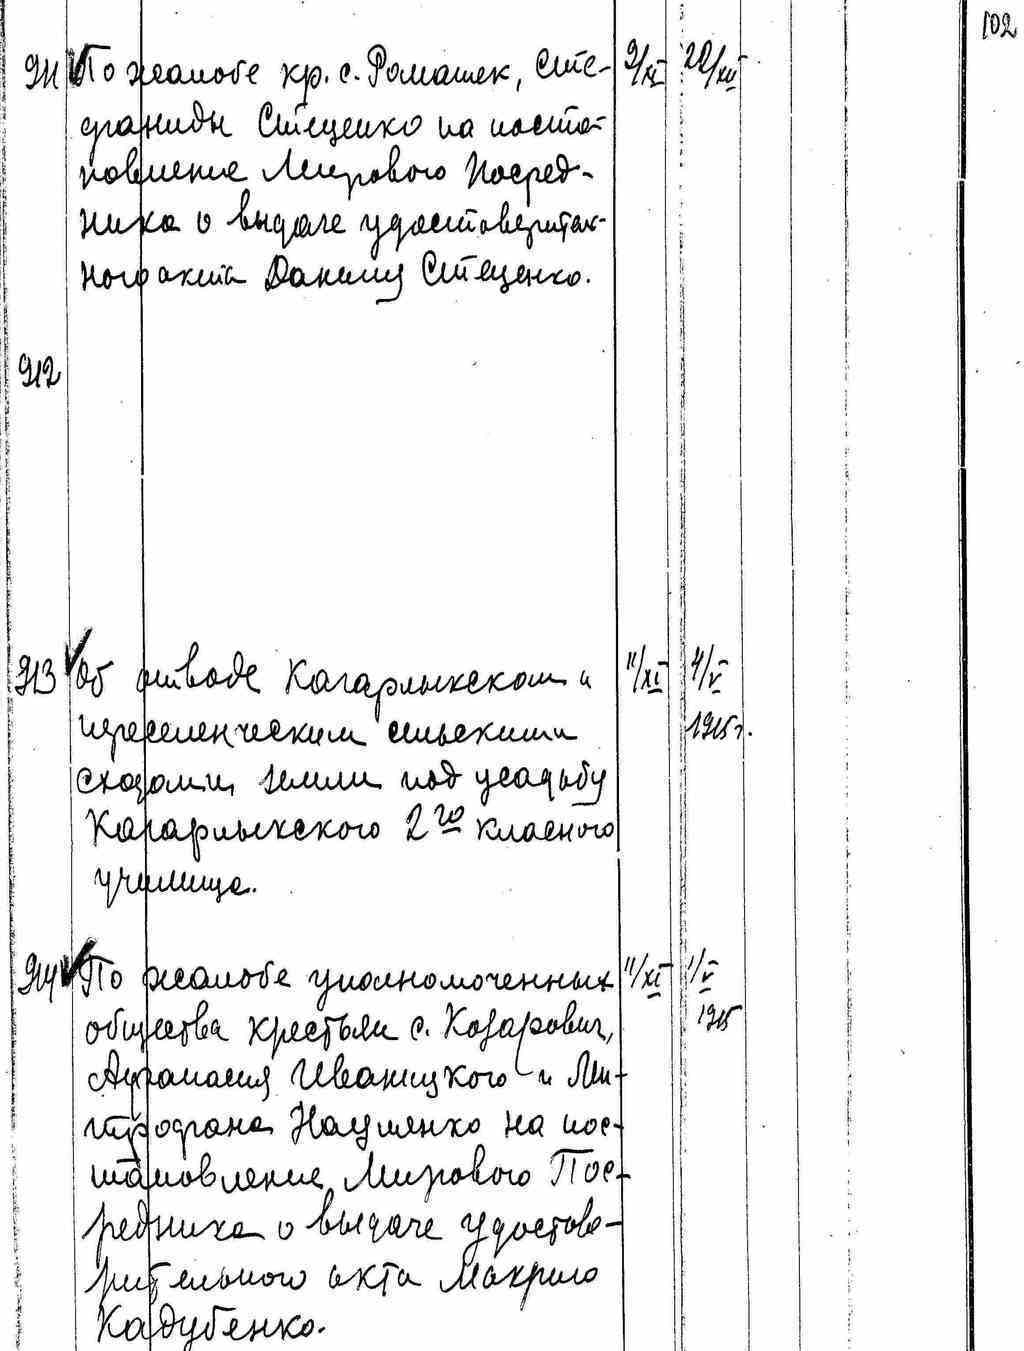 102
911 По жалобе кр. с. Ромашек, Сте- 9/XI 20/XII
фаниды Стеценко на поста-
новление Мирового Посред-
ника о выдаче удостоверитель-
ного акта Данилу Стеценко.
912
913 Об отводе Кагарлыкским и 11/XI 4/V
переселенческим сельскими 1915 г.
сходами земли под усадьбу
Кагарлыкского 2го класного
училища.
914 По жалобе уполномоченных 11/XI 1/V
общества крестьян с. Козарович, 1915
Афанасия Иваницкого и Ми-
трофана Науменко на пос-
тановление Мирового Пос-
редника о выдаче удостове-
рительного акта Макрию
Кадубенко.